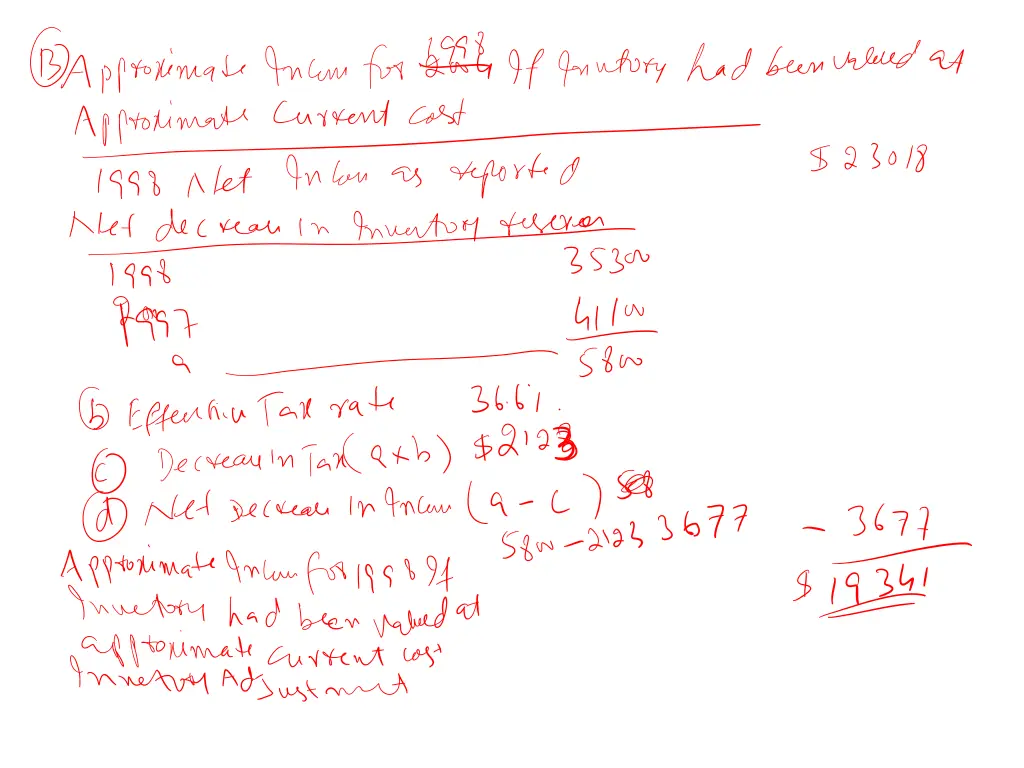 (B) Approximate Incom for 1998 If Inventory had been valued at
Approximate Current cost
1998 Net Incom as reported $ 23018
Net decrease in Inventory reserve
1998 35300
1997 41100
a 5800
(b) Effective Tax rate 36.61.
(c) Decrease In Tax (a×b) $2123
(d) Net Decrease In Incom (a - c)
5800 - 2123 3677 - 3677
Approximate Incom for 1998 If $ 19341
Inventory had been valued at
approximate current cost
Inventory Adjustment